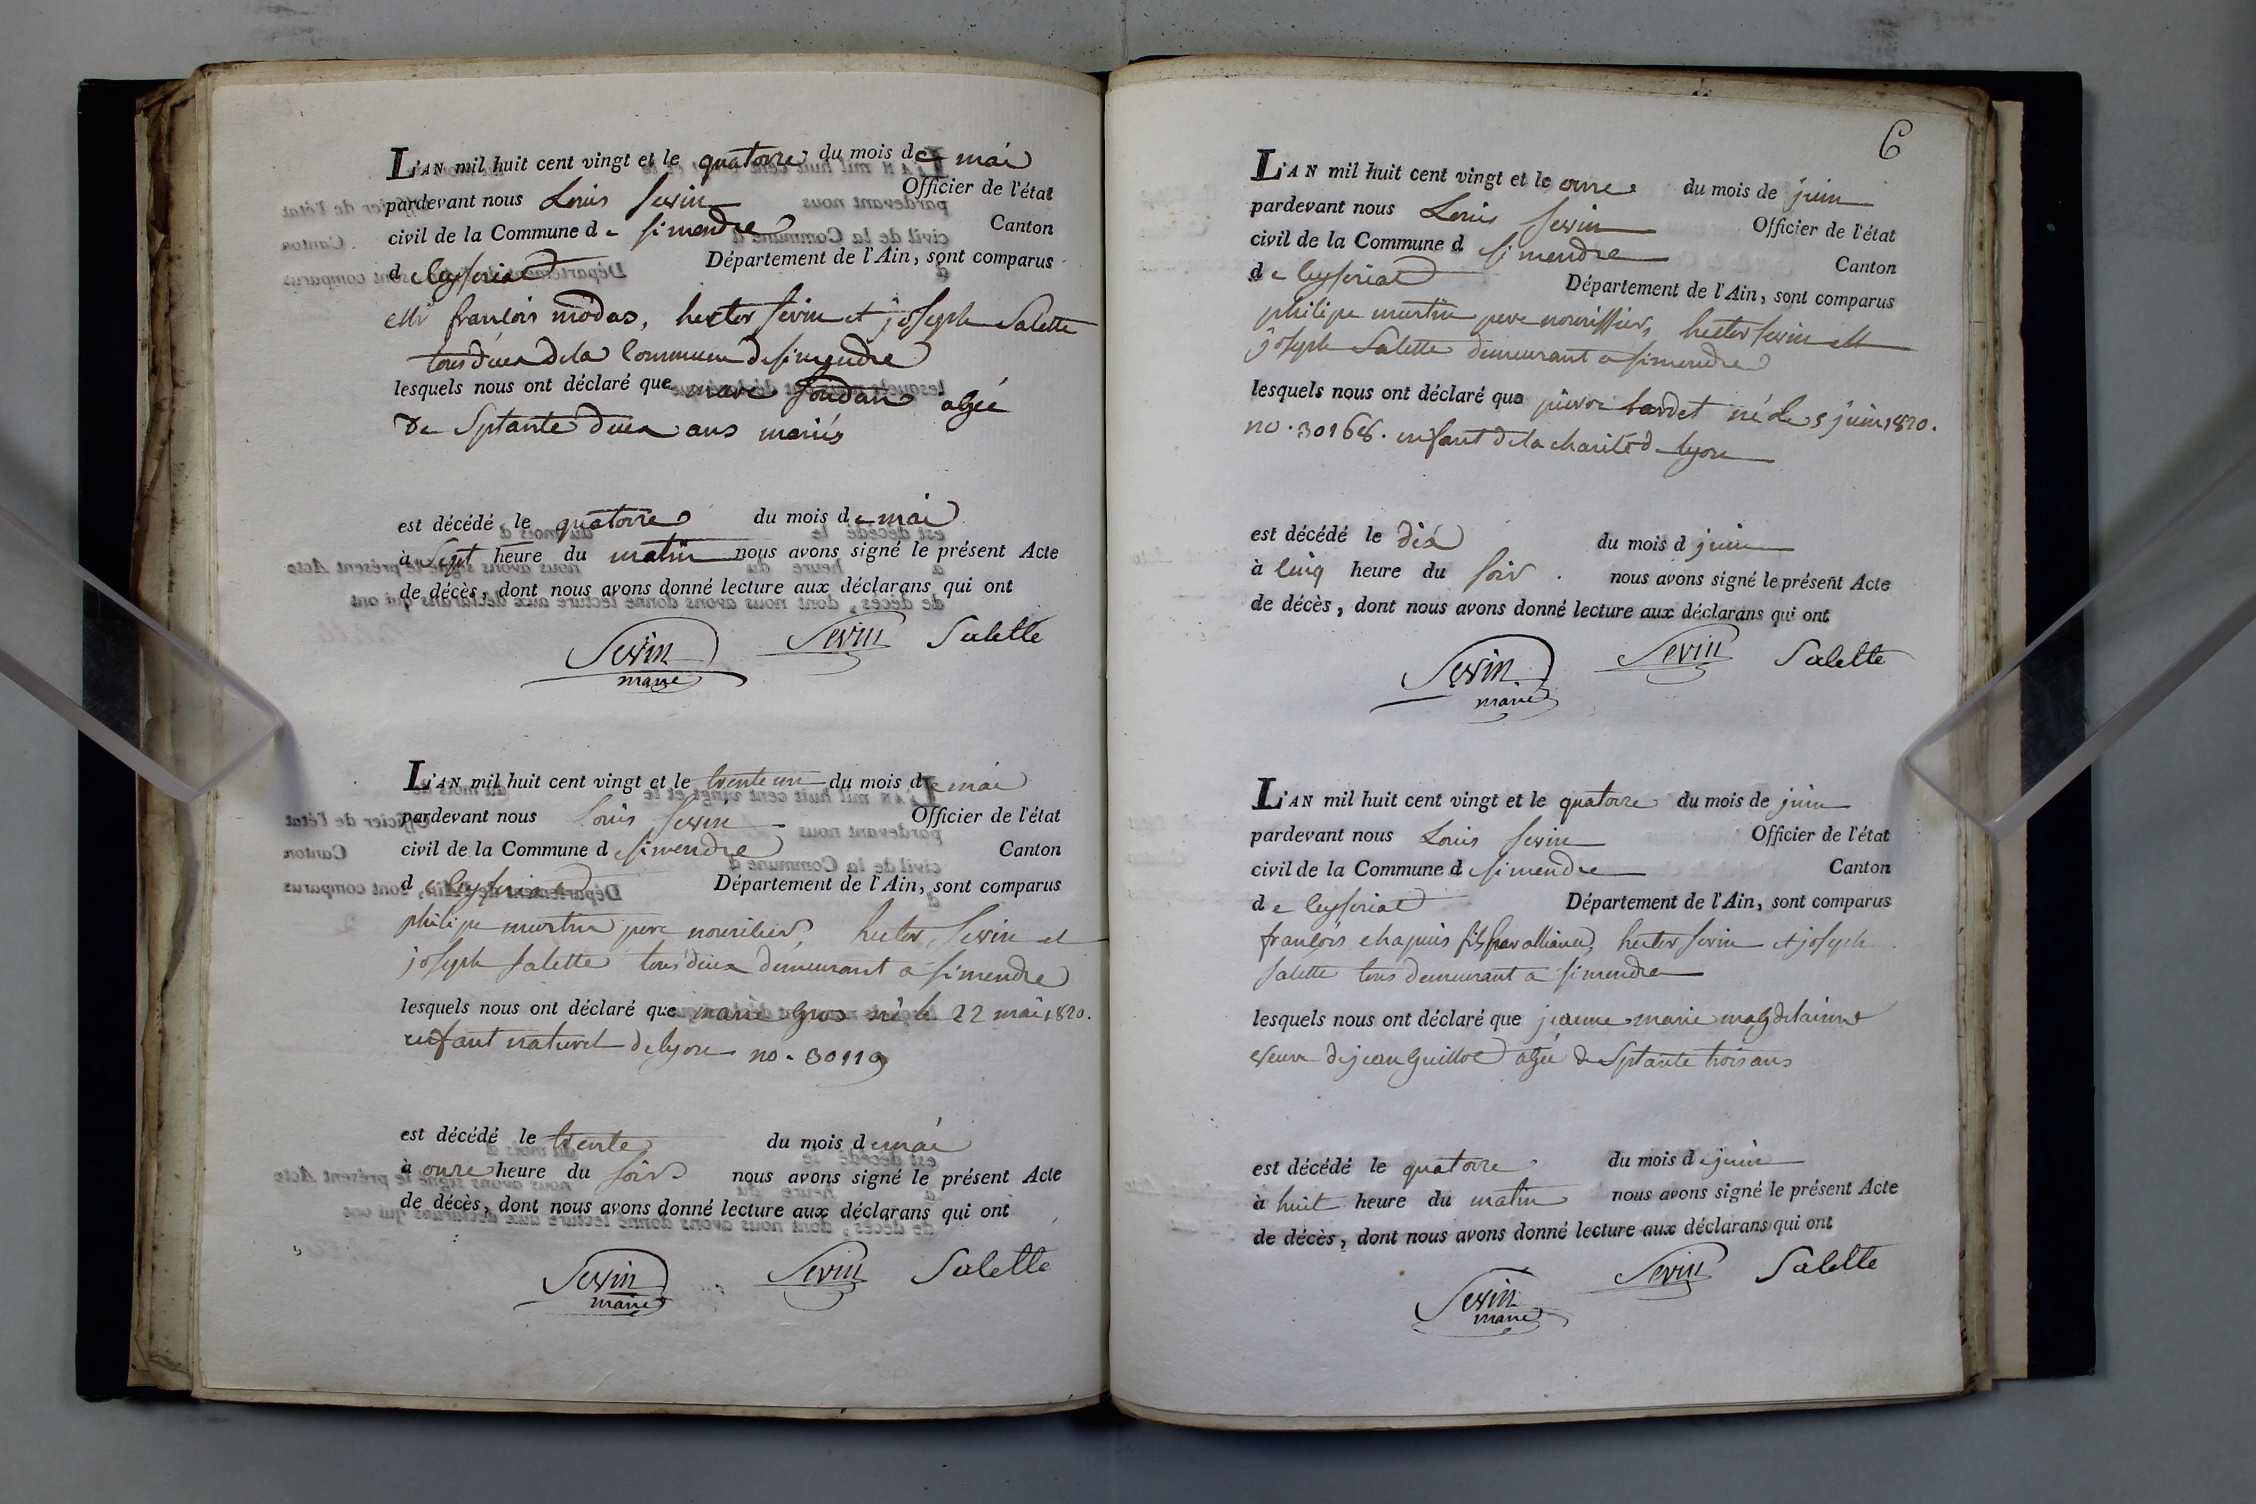 L'AN mil huit cent vingt et le quatorze du mois de mai
pardevant nous Louis Sevin Officier de l'état
civil de la Commune de Simendre Canton
de Ceyseriat Département de l'Ain, sont comparus
françois modas, hector Sevin et joseph Salette
tous deux de la Commune de Simendre
lesquels nous ont déclaré que marc Soudan agée
de Septante deux ans mariés
est décédé le quatorze du mois de mai
à Sept heure du matin nous avons signé le présent Acte
de décès, dont nous avons donné lecture aux déclarans qui ont
Sevin Sevin Salette
maire
L'AN mil huit cent vingt et le trente un du mois de mai
pardevant nous Louis Sevin Officier de l'état
civil de la Commune d Simendre Canton
de Ceyseriat Département de l'Ain, sont comparus
philipe martin pere nouricier, hector Sevin et
joseph Salette tous deux demeurant a Simendre
lesquels nous ont déclaré que marie Gros né le 22 mai 1820.
enfant naturel de lyon no. 30119
est décédé le trente du mois de mai
à onze heure du soir nous avons signé le présent Acte
de décès, dont nous avons donné lecture aux déclarans qui ont
Sevin Sevin Salette
maire
6
L'AN mil huit cent vingt et le onze du mois de juin
pardevant nous Louis Sevin Officier de l'état
civil de la Commune d Simendre Canton
de Ceyseriat Département de l'Ain, sont comparus
philipe martin pere nourissier, hector Sevin et
joseph Salette demeurant a Simendre
lesquels nous ont déclaré que pierre hardet né le 5 juin 1820.
no. 30168. enfant de la charité de lyon
est décédé le dix du mois d juin
à cinq heure du soir. nous avons signé le présent Acte
de décès, dont nous avons donné lecture aux déclarans qui ont
Sevin Sevin Salette
maire
L'AN mil huit cent vingt et le quatorze du mois de juin
pardevant nous Louis Sevin Officier de l'état
civil de la Commune d Simendre Canton
de Ceyseriat Département de l'Ain, sont comparus
françois chapuis fils par alliance, hector Sevin et joseph
Salette tous demeurant a Simendre
lesquels nous ont déclaré que jeanne marie magdelainne
veuve de jean Guillot agée de Septante trois ans
est décédé le quatorze du mois de juin
à huit heure du matin nous avons signé le présent Acte
de décès, dont nous avons donné lecture aux déclarans qui ont
Sevin Sevin Salette
maire